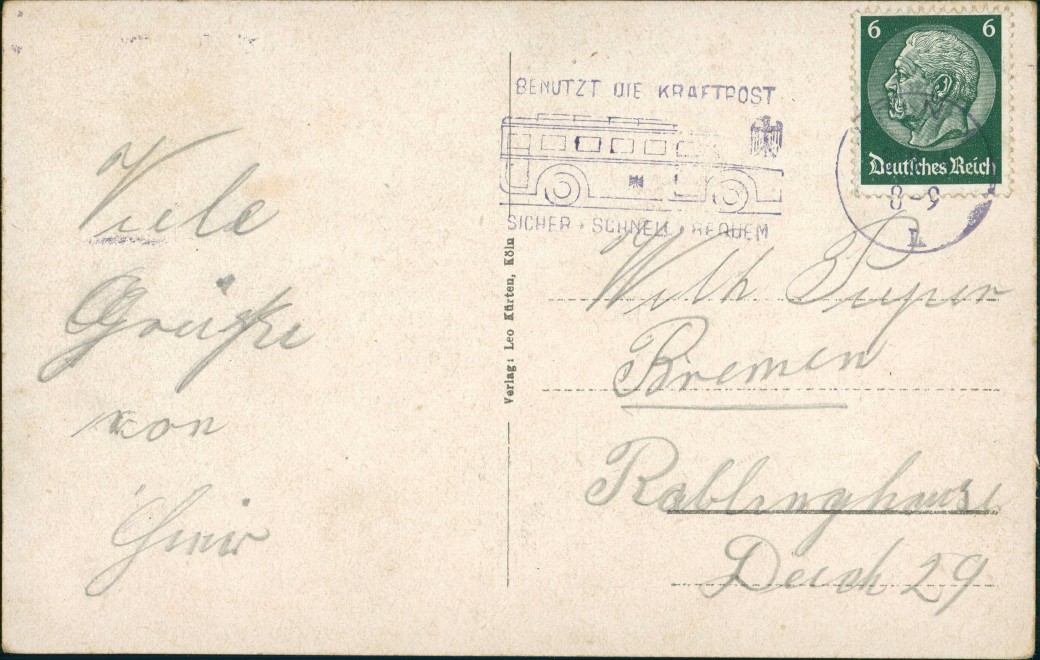 BENUTZT DIE KRAFTPOST
SICHER · SCHNELL · BEQUEM
6 6
Deutsches Reich
8-9
Viele
Grüße
von
Verlag: Leo Kürten, Köln
Wilh Pieper
Bremen
Rablinghause
Deich 29